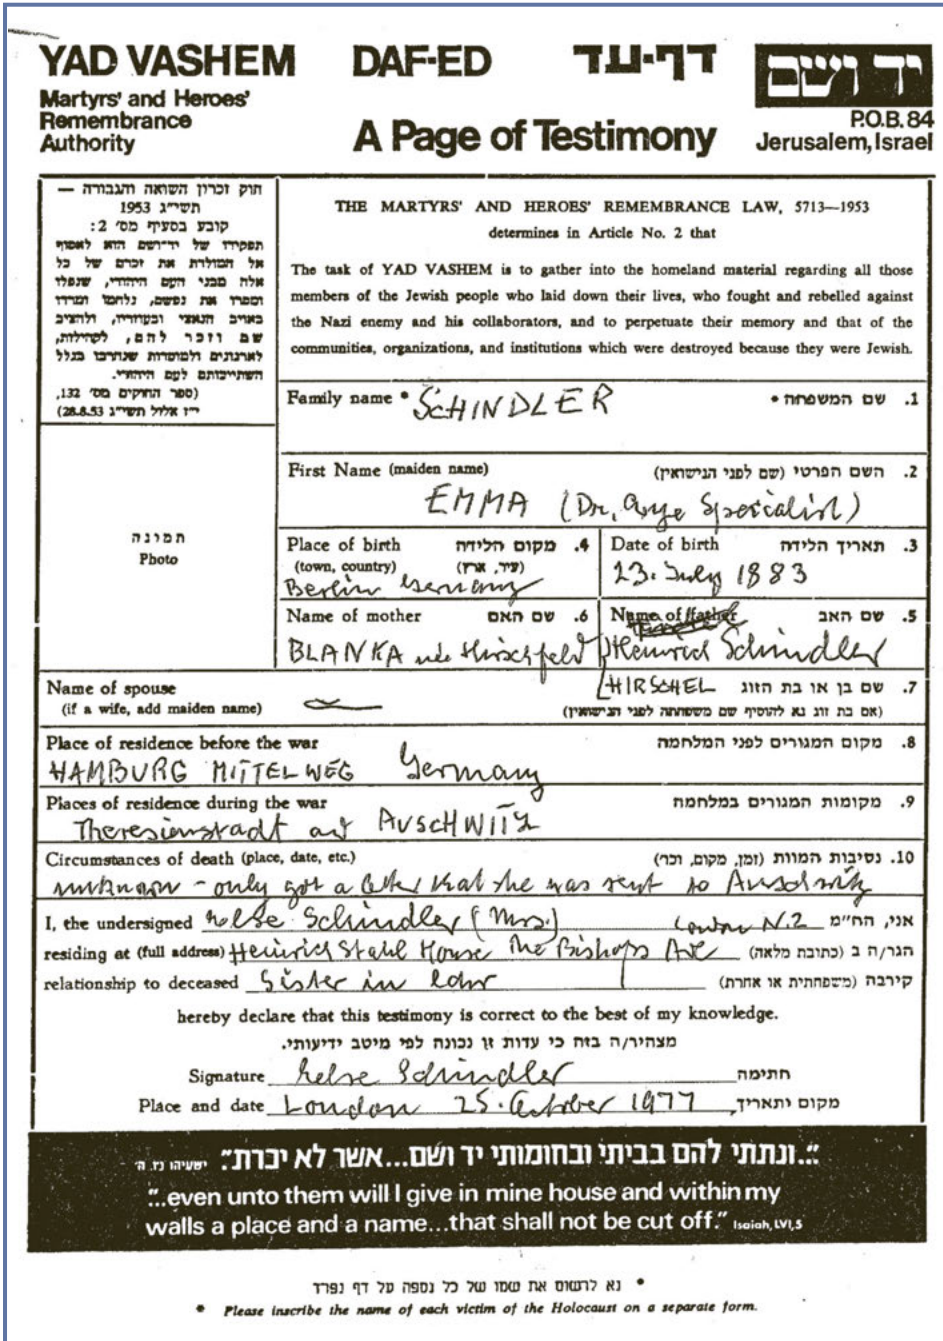 YAD VASHEM DAF-ED דף-עד יד ושם
Martyrs' and Heroes'
Remembrance
Authority
A Page of Testimony
P.O.B. 84
Jerusalem, Israel
חוק זכרון השואה והגבורה —
תשי״ג 1953
קובע בסעיף מס׳ 2:
תפקידו של יד-ושם הוא לאסוף
אל המולדת את זכרם של כל
אלה מבני העם היהודי, שנפלו
ומסרו את נפשם, נלחמו ומרדו
באויב הנאצי ובעוזריו, ולהציב
שם וזכר להם, לקהילות,
לארגונים ולמוסדות שנחרבו בגלל
השתייכותם לעם היהודי.
(ספר החוקים מס׳ 132,
י״ז אלול תשי״ג 28.8.53)
THE MARTYRS' AND HEROES' REMEMBRANCE LAW, 5713—1953
determines in Article No. 2 that
The task of YAD VASHEM is to gather into the homeland material regarding all those
members of the Jewish people who laid down their lives, who fought and rebelled against
the Nazi enemy and his collaborators, and to perpetuate their memory and that of the
communities, organizations, and institutions which were destroyed because they were Jewish.
תמונה
Photo
Family name * SCHINDLER 1. שם המשפחה *
First Name (maiden name) 2. השם הפרטי (שם לפני הנישואין)
EMMA (Dr. Eye Specialist)
Place of birth 4. מקום הלידה Date of birth 3. תאריך הלידה
(town, country) (עיר, ארץ) 23. July 1883
Berlin Germany
Name of mother 6. שם האם Name of father 5. שם האב
BLANKA née Hirschfeld Heinrich Schindler
Name of spouse HIRSCHEL 7. שם בן או בת הזוג
(if a wife, add maiden name) (אם בת זוג נא להוסיף שם משפחתה לפני הנישואין)
Place of residence before the war 8. מקום המגורים לפני המלחמה
HAMBURG MITTELWEG Germany
Places of residence during the war 9. מקומות המגורים במלחמה
Theresienstadt and AUSCHWITZ
Circumstances of death (place, date, etc.) 10. נסיבות המוות (זמן, מקום, וכו׳)
unknown - only got a letter that she was sent to Auschwitz
I, the undersigned Schindler (Mrs.) London N.2 אני, הח״מ
residing at (full address) Heinrich Stahl House The Bishops Ave הגר/ה ב (כתובת מלאה)
relationship to deceased Sister in law קירבה (משפחתית או אחרת)
hereby declare that this testimony is correct to the best of my knowledge.
מצהיר/ה בזה כי עדות זו נכונה לפי מיטב ידיעותי.
Signature Schindler חתימה
Place and date London 25. October 1977 מקום ותאריך,
"...ונתתי להם בביתי ובחומותי יד ושם...אשר לא יכרת." ישעיהו נו, ה׳
"...even unto them will I give in mine house and within my
walls a place and a name...that shall not be cut off." Isaiah, LVI, 5
* נא לרשום את שמו של כל נספה על דף נפרד
* Please inscribe the name of each victim of the Holocaust on a separate form.